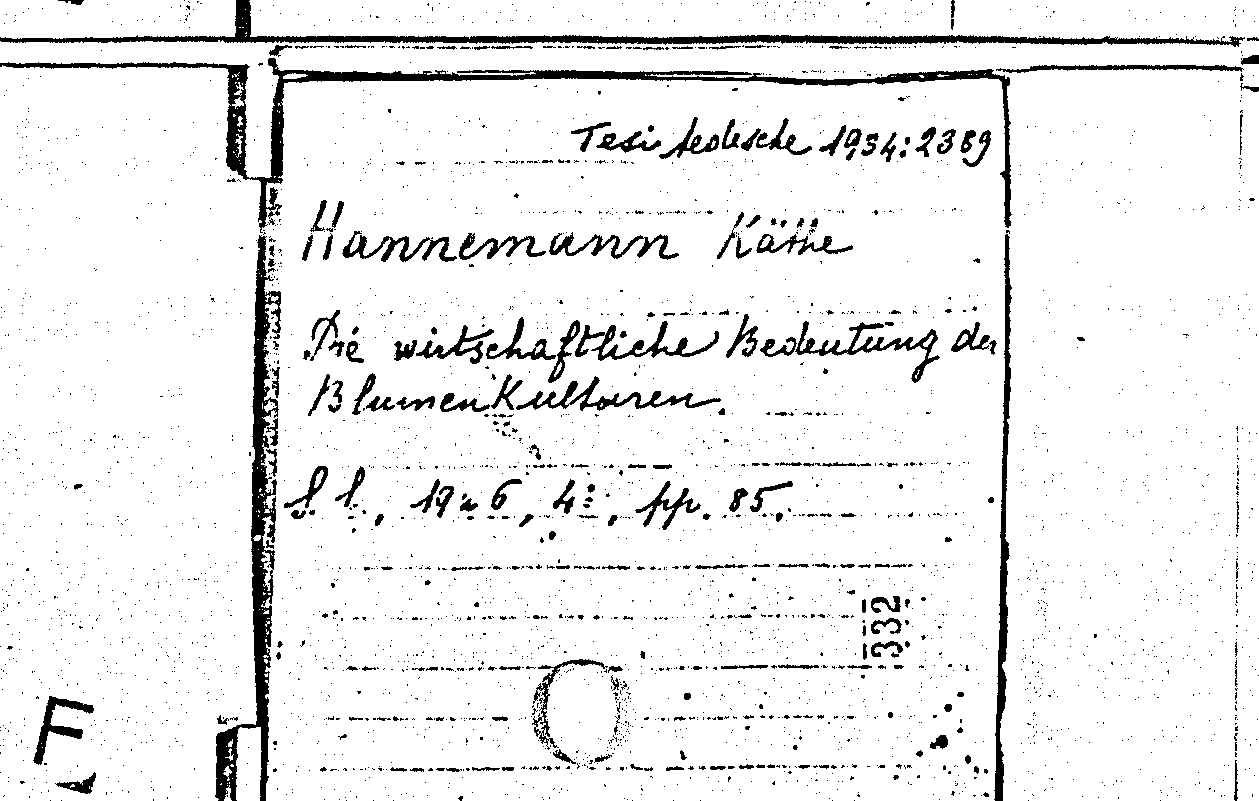 Tesi tedesche 1934:2389
Hannemann Käthe
Die wirtschaftliche Bedeutung der
Blumenkulturen.
S. l., 1926, 4°, pp. 85.
332
F